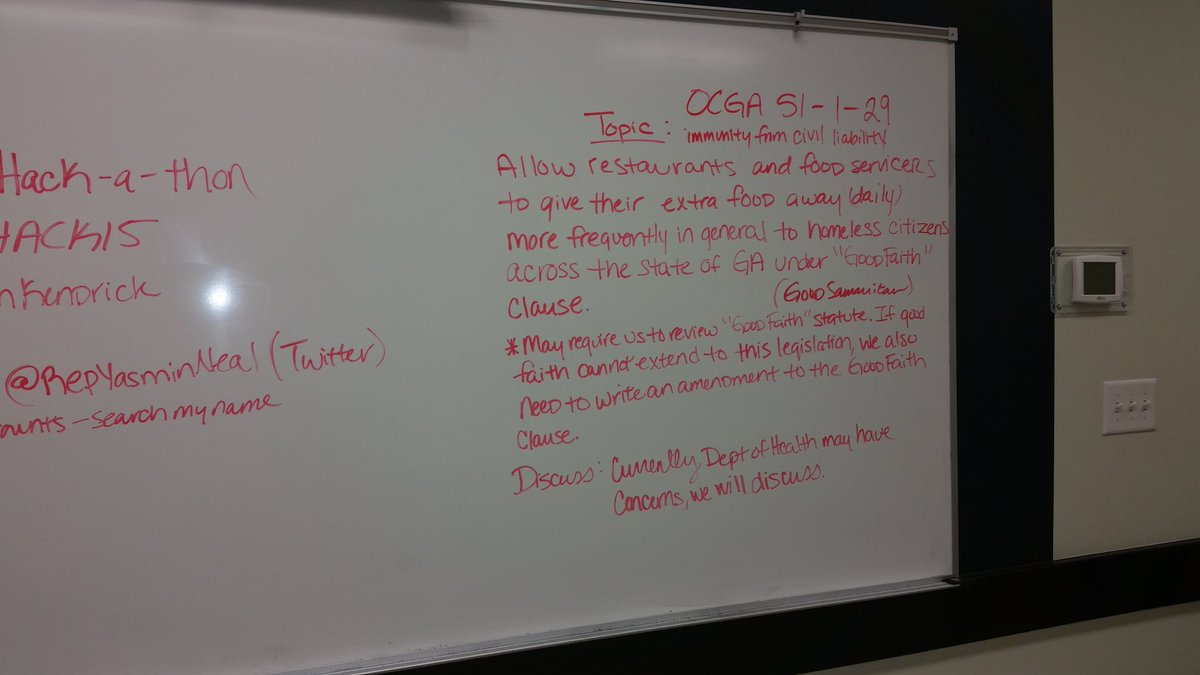 Hack-a-thon
HACK15
nKendrick
@RepYasminNeal (Twitter)
ounts - search my name
OCGA 51-1-29
Topic: immunity from civil liability
Allow restaurants and food servicers
to give their extra food away (daily)
more frequently in general to homeless citizens
across the state of GA under "Good Faith"
Clause. (Good Samaritan)
* May require us to review "Good Faith" statute. If good
faith cannot extend to this legislation, we also
need to write an amendment to the Good Faith
Clause.
Discuss: Currently Dept of Health may have
Concerns, we will discuss.